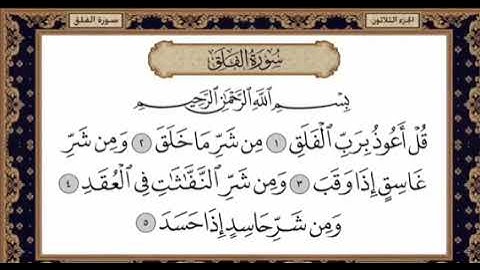 الجزء الثلاثون
سورة الفلق
سُورَةُ الفَلَق
بِسْمِ ٱللَّهِ ٱلرَّحْمَٰنِ ٱلرَّحِيمِ
قُلْ أَعُوذُ بِرَبِّ ٱلْفَلَقِ ١ مِن شَرِّ مَا خَلَقَ ٢ وَمِن شَرِّ
غَاسِقٍ إِذَا وَقَبَ ٣ وَمِن شَرِّ ٱلنَّفَّٰثَٰتِ فِي ٱلْعُقَدِ ٤
وَمِن شَرِّ حَاسِدٍ إِذَا حَسَدَ ٥